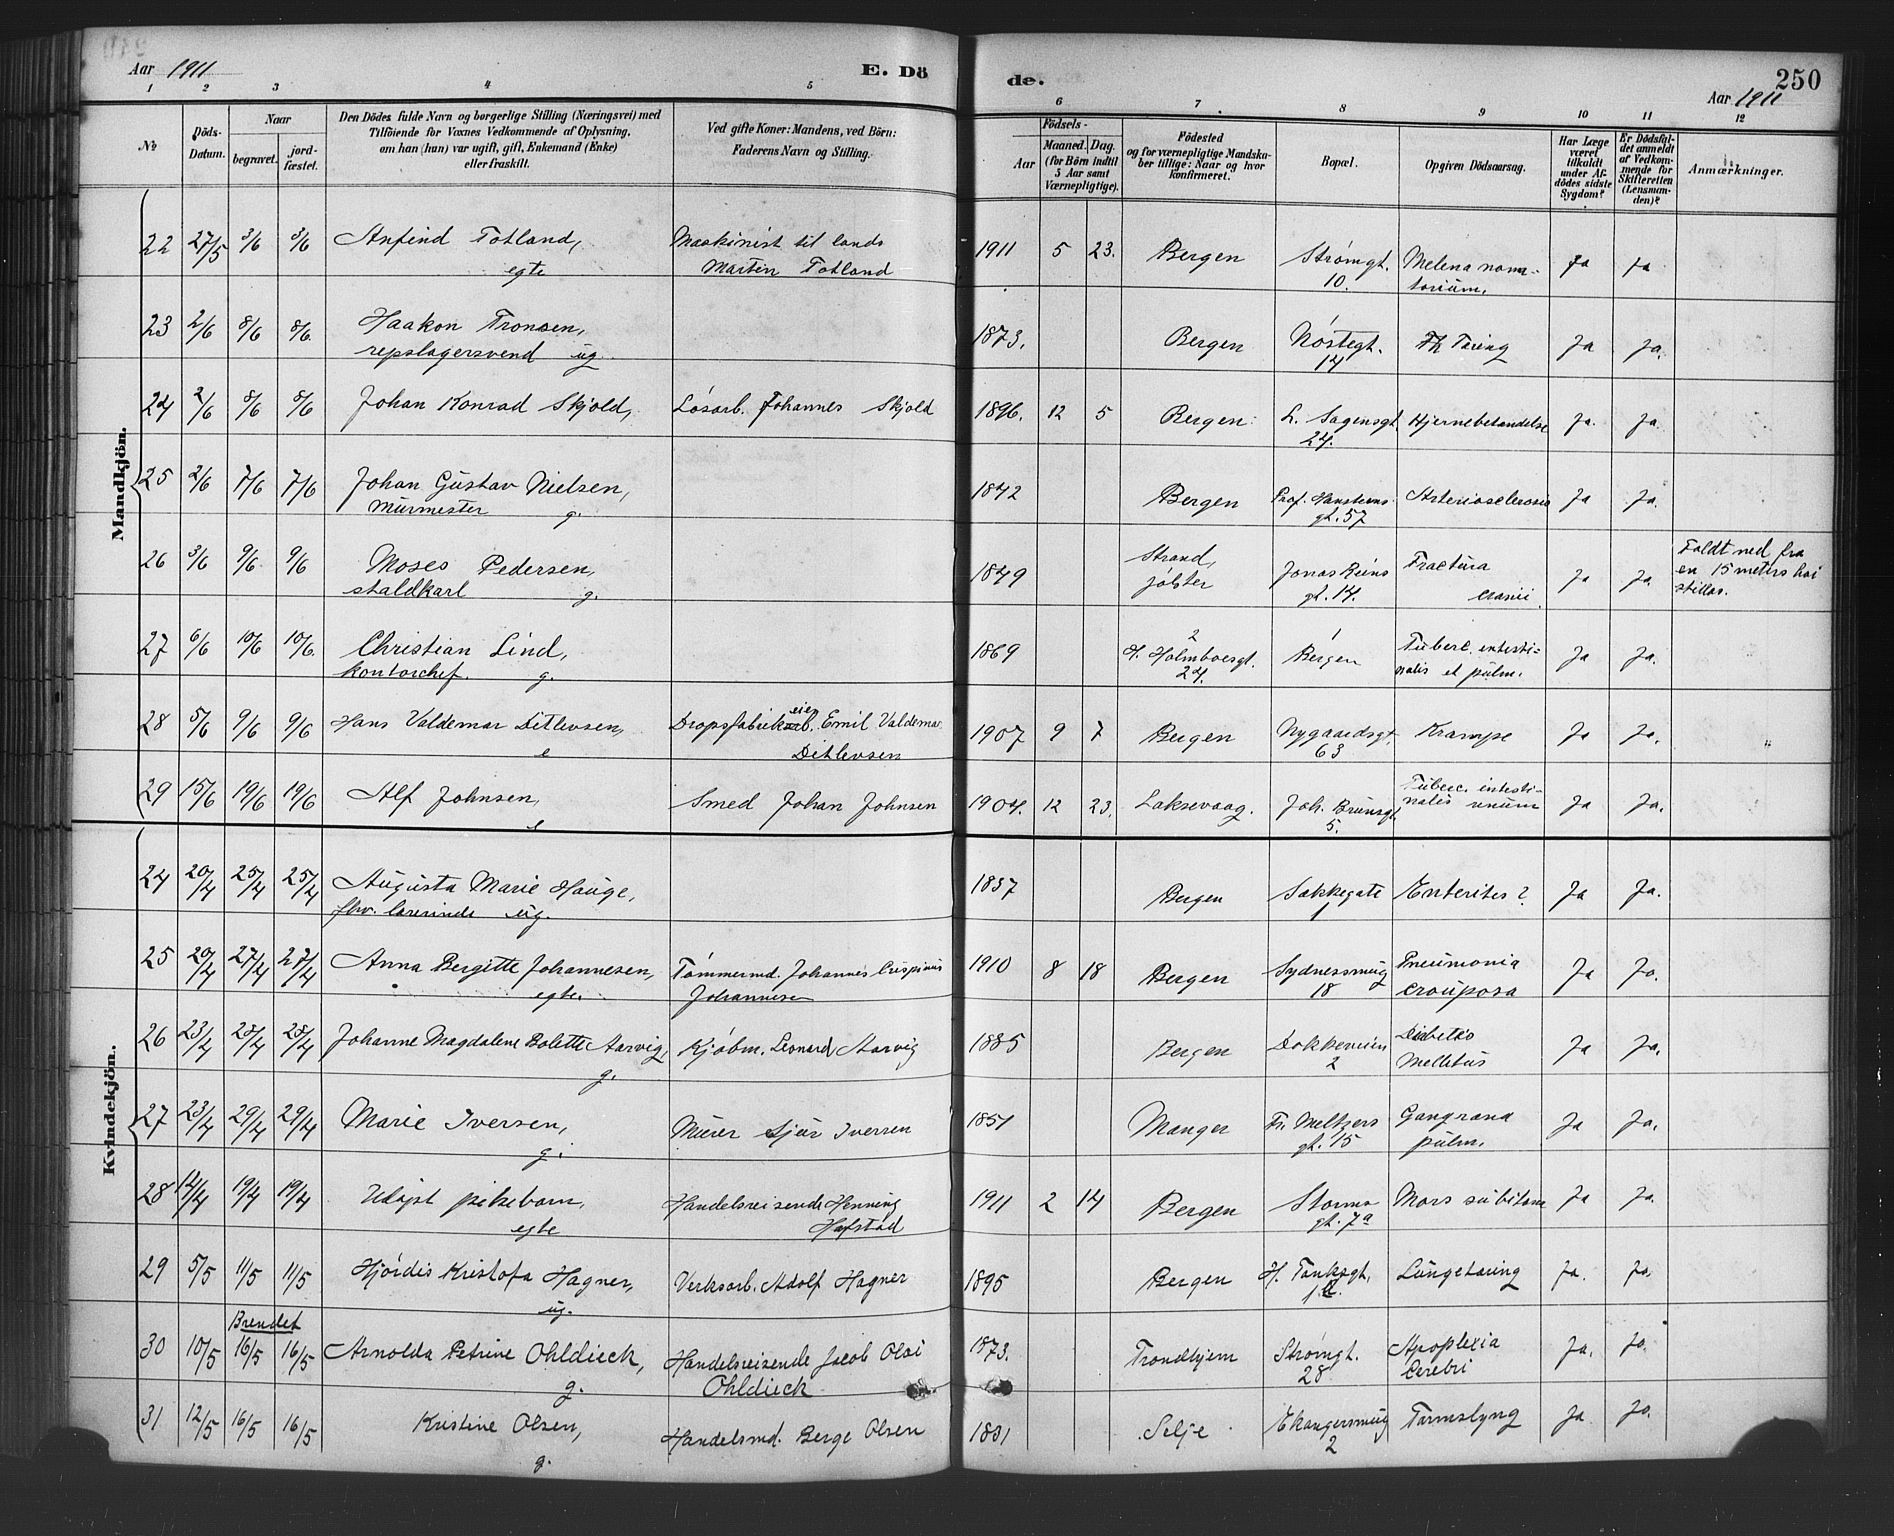 Aar 1911
E. Dö
de.
250
Aar 1911
1 2 3 4 5 6 7 8 9 10 11 12
No
Döds-
Datum.
Naar
begravet.
jord-
fæstet.
Den Dödes fulde Navn og borgerlige Stilling (Næringsvei) med
Tilföiende for Voxnes Vedkommende af Oplysning,
om han (hun) var ugift, gift, Enkemand (Enke)
eller fraskilt.
Ved gifte Koner: Mandens, ved Börn:
Faderens Navn og Stilling.
Födsels-
Aar
Maaned. Dag.
(for Börn indtil
5 Aar samt
Værnepligtige).
Födested
og for værnepligtige Mandska-
ber tillige: Naar og hvor
konfirmeret.
Bopæl.
Opgiven Dödsaarsag.
Har Læge
været
tilkaldt
under Af-
dödes sidste
Sygdom?
Er Dödsfal-
det anmeldt
af Vedkom-
mende for
Skifteretten
(Lensman-
den)?
Anmærkninger.
Mandkjön.
22 27/5 3/6 3/6 Anfind Totland, Maskinist til lands 1911 5 23. Bergen Strømgt. Melena Ja Ja
egte Martin Totland 10.
23 2/6 8/6 8/6 Haakon Tronsen, 1873. Bergen Nøstegt. Tæring Ja Ja.
repslagersvend ug. 14
24 2/6 8/6 8/6 Johan Konrad Skjold, Løsarb. Johannes Skjold 1896. 12 5 Bergen. L. Sagensgt. Hjernebetændelse Ja. Ja.
24.
25 2/6 7/6 7/6 Johan Gustav Nielsen, 1842 Bergen Prof. Hansteens Arteriosclerosis Ja Ja.
Murmester g. gt. 57
26 3/6 9/6 9/6 Moses Pedersen, 1849 Strand, Jonas Reins Fractura Ja Ja. Faldt ned fra
staldkarl g. jølster gt. 14. cranii. en 15 meters høi
stillas.
27 6/6 10/6 10/6 Christian Lind, 1869 2 H. Holmboesgt. 1 Bergen Tuberc. intesti- Ja Ja.
kontorchef. g. 24. nalis et pulm.
28 5/6 9/6 9/6 Hans Valdemar Ditlevsen, Dropsfabrikeier Emil Valdemar 1907 9 7 Bergen Nygaardsgt. Krampe Ja Ja.
e Ditlevsen 63
29 15/6 19/6 19/6 Alf Johnsen, Smed Johan Johnsen 1904. 12 23. Laksevaag. Joh. Brunsgt. Tuberc. intesti- Ja Ja.
e 5. nalis
Kvindekjön.
24 20/4 25/4 25/4 Augusta Marie Hauge, 1837 Bergen Sækkegate Enterites? Ja Ja.
fhv. lærerinde ug. 1
25 20/4 27/4 27/4 Anna Bergitte Johannesen, Tømmermd. Johannes Crispinus 1910 8 18 Bergen Sydnessmug Pneumonia Ja Jo.
egte. Johannesen 18 crouposa
26 23/4 28/4 28/4 Johanne Magdalene Bolette Aarvig, Kjøbm. Leonard Aarvig 1885 Bergen Dokkeveien Diabetes Ja Ja.
g. 2 Mellitus
27 23/4 29/4 29/4 Marie Iversen, Murer Sjur Iversen 1851 Manger Fr. Meltzers Gangræna Ja Ja.
g. gt. 15 pulm.
28 14/4 19/4 19/4 Udøpt pikebarn, Handelsreisende Henning 1911 2 14 Bergen Storms Mors subitanea Ja Ja.
egte Hafstad gt. 7a
29 5/5 11/5 11/5 Hjørdis Kristofa Hagner, Verksarb. Adolf Hagner 1895 Bergen H. Tanksgt. Lungetæring Ja. Jo.
ug.
Brendet
30 10/5 16/5 16/5 Arnolda Petrine Ohldieck, Handelsreisende Jacob Olai 1873. Trondhjem Strømgt. Apoplexia Ja. Jo.
g. Ohldieck 28 Cerebri
31 12/5 16/5 16/5 Kristine Olsen, Handelsmd. Berge Olsen 1831 Selje Ekangersmug Tarmslyng Ja Jo.
g. 2